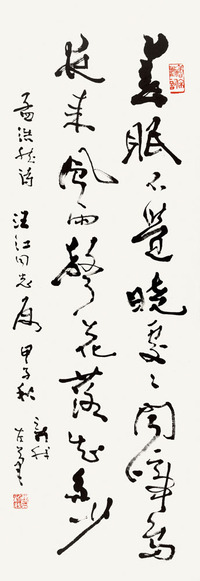 春眠不覺曉處〻聞啼鳥
夜來風雨聲花落知多少
孟浩然诗 汪江同志属 甲子秋 新我
左笔